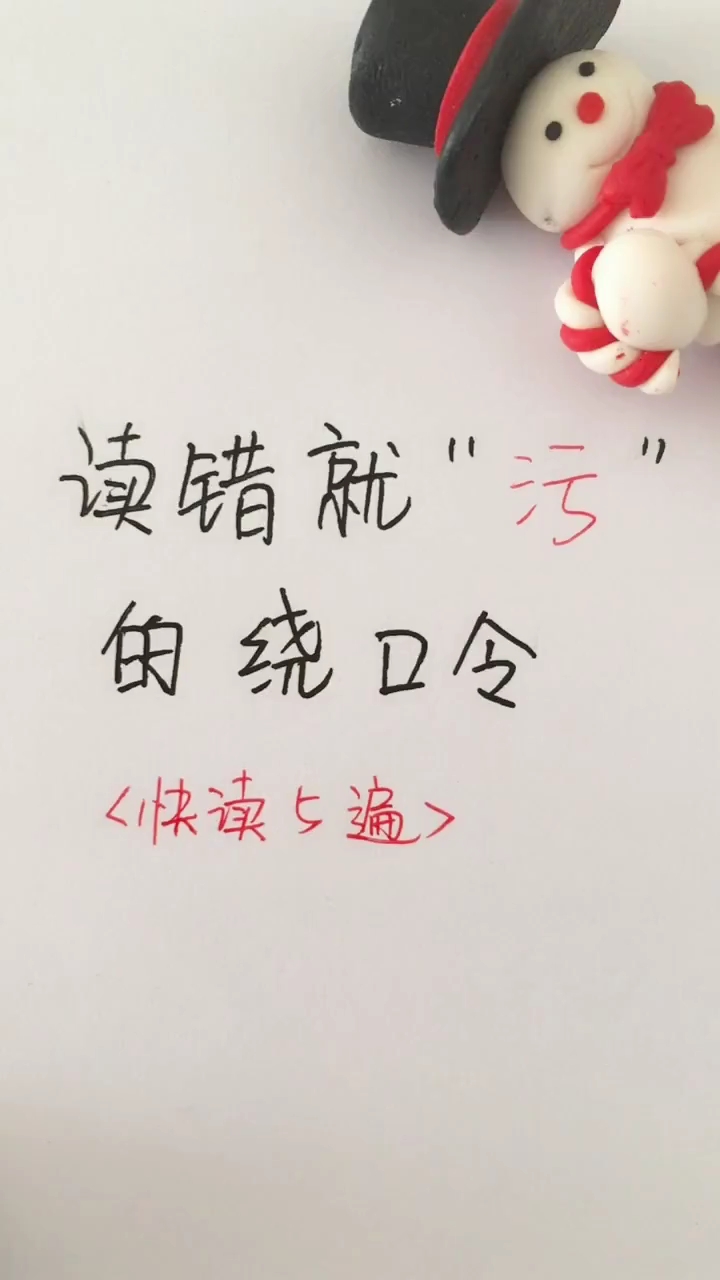 读错就"污"
的绕口令
<快读5遍>